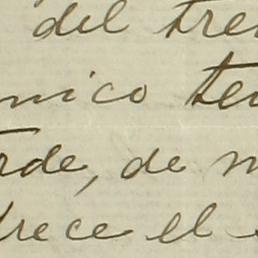 del tre
mico te
rde, de m
rece el